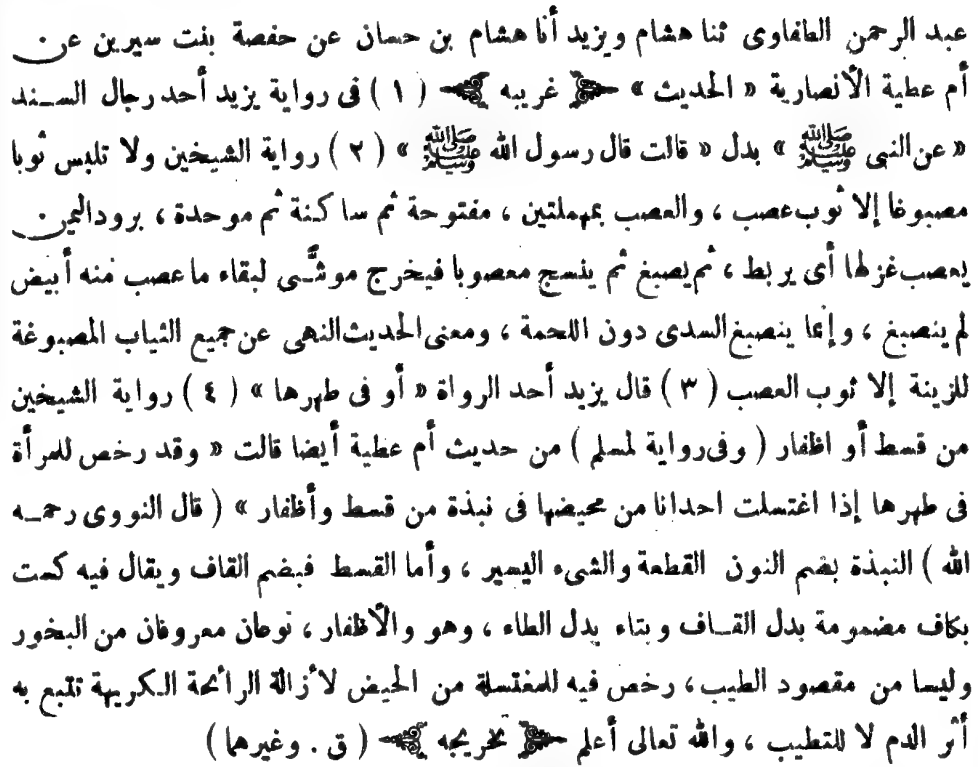 عبد الرحمن الطفاوى ثنا هشام ويزيد أنا هشام بن حسان عن حفصة بنت سيرين عن
أم عطية الأنصارية « الحديث » ﴿ غريبه ﴾ ( ١ ) فى رواية يزيد أحد رجال السند
« عن النبى ﷺ » بدل « قالت قال رسول الله ﷺ » ( ٢ ) رواية الشيخين ولا تلبس ثوبا
مصبوغا إلا ثوب عصب ، والعصب بمهملتين ، مفتوحة ثم ساكنة ثم موحدة ، برود اليمن
يعصب غزلها أى يربط ، ثم يصبغ ثم ينسج معصوبا فيخرج موشَّى لبقاء ما عصب منه أبيض
لم ينصبغ ، وإنما ينصبغ السدى دون اللحمة ، ومعنى الحديث النهى عن جميع الثياب المصبوغة
للزينة إلا ثوب العصب ( ٣ ) قال يزيد أحد الرواة « أو فى طهرها » ( ٤ ) رواية الشيخين
من قسط أو اظفار ( وفى رواية لمسلم ) من حديث أم عطية أيضا قالت « وقد رخص للمرأة
فى طهرها إذا اغتسلت احدانا من محيضها فى نبذة من قسط وأظفار » ( قال النووى رحمه
الله ) النبذة بضم النون القطعة والشىء اليسير ، وأما القسط فبضم القاف ويقال فيه كست
بكاف مضمومة بدل القاف وبتاء بدل الطاء ، وهو والأظفار ، نوعان معروفان من البخور
وليسا من مقصود الطيب ، رخص فيه للمغتسلة من الحيض لأزالة الرائحة الكريهة تتبع به
أثر الدم لا للتطيب ، والله تعالى أعلم ﴿ تخريجه ﴾ ( ق . وغيرهما )